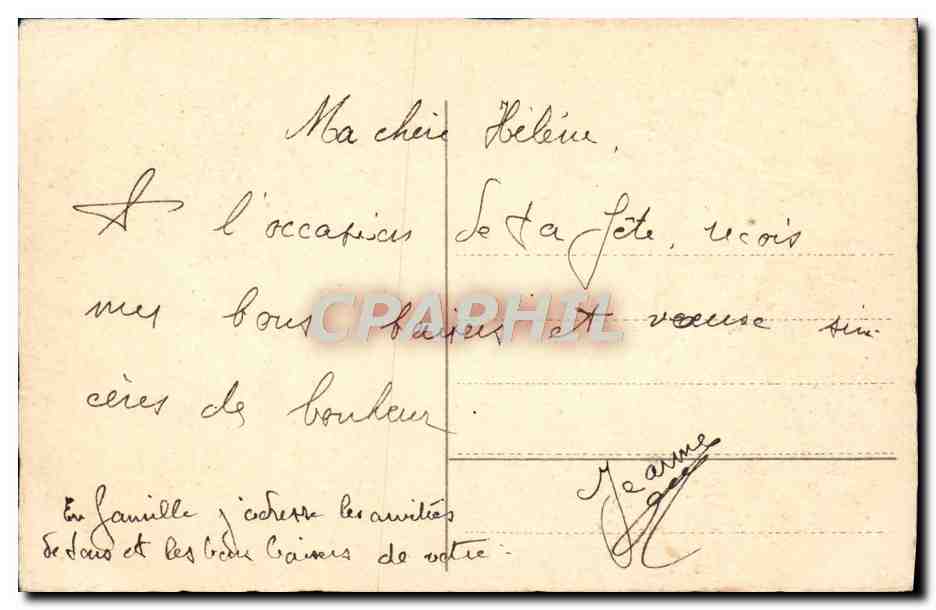 Ma chère Hélène,
A l'occasion de ta fête, reçois
mes bons baisers et vœux sin-
cères de bonheur.
CPAPHIL
Jeanne
En famille j'adresse les amitiés
de tous et les bons baisers de votre